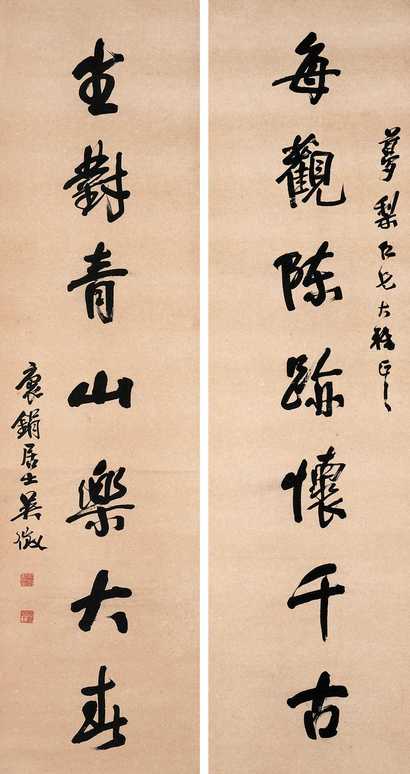 夢梨仁兄大雅正
每觀陳跡懷千古
坐對青山樂大春
褱鋗居士吳徵